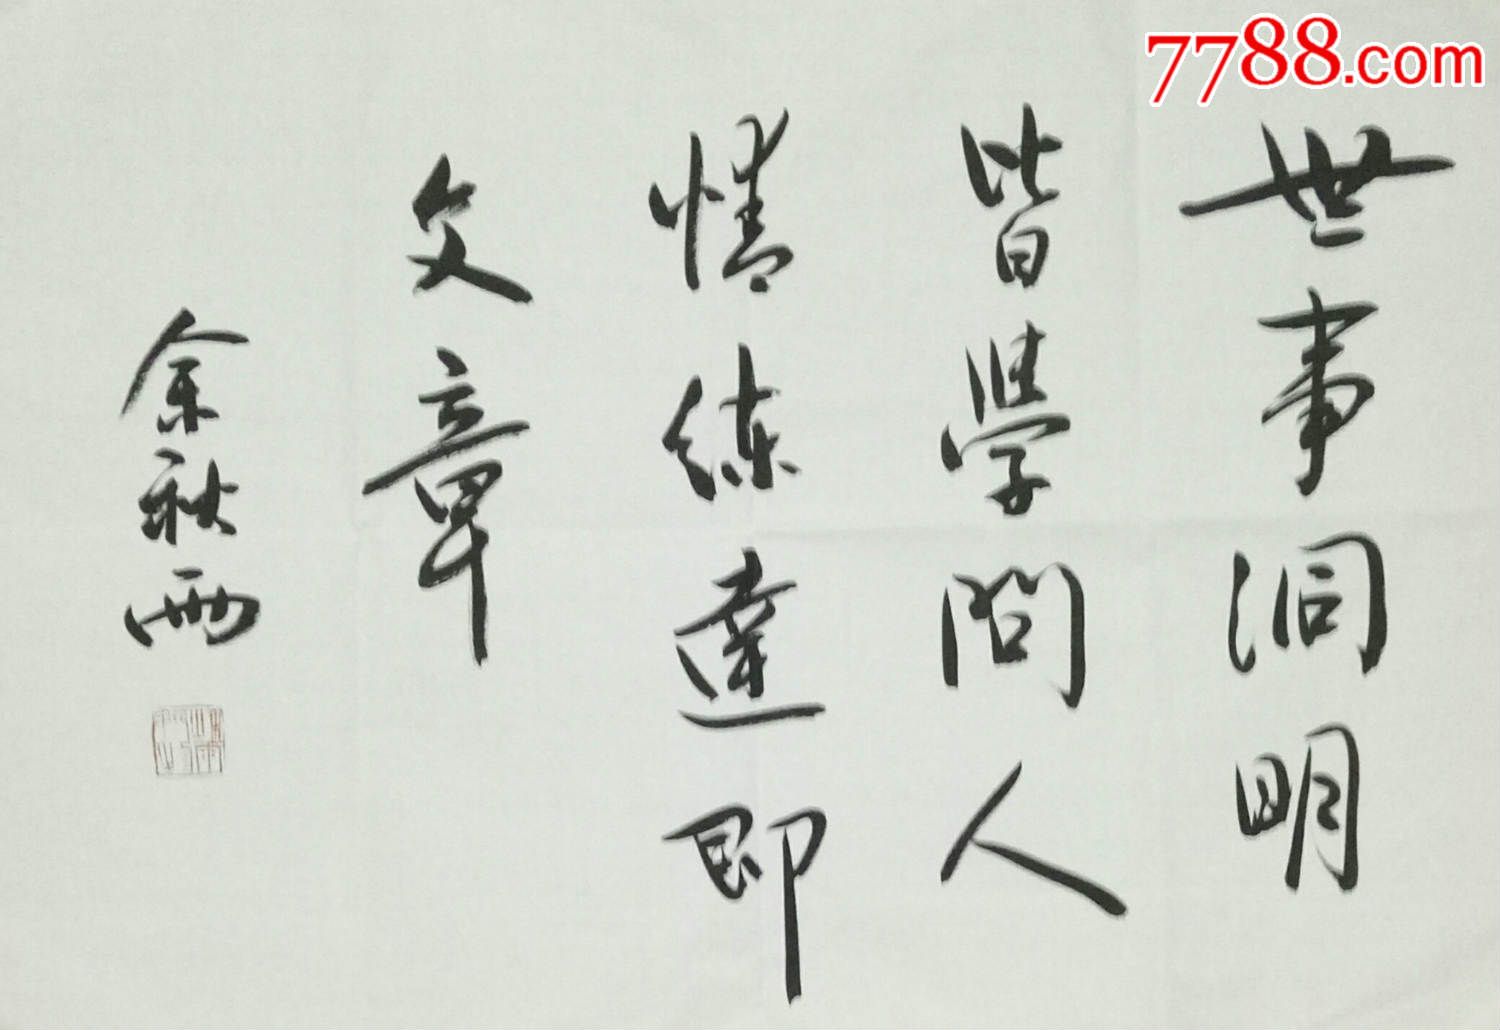 7788.com
世事洞明
皆學问人
情练達即
文章
余秋雨